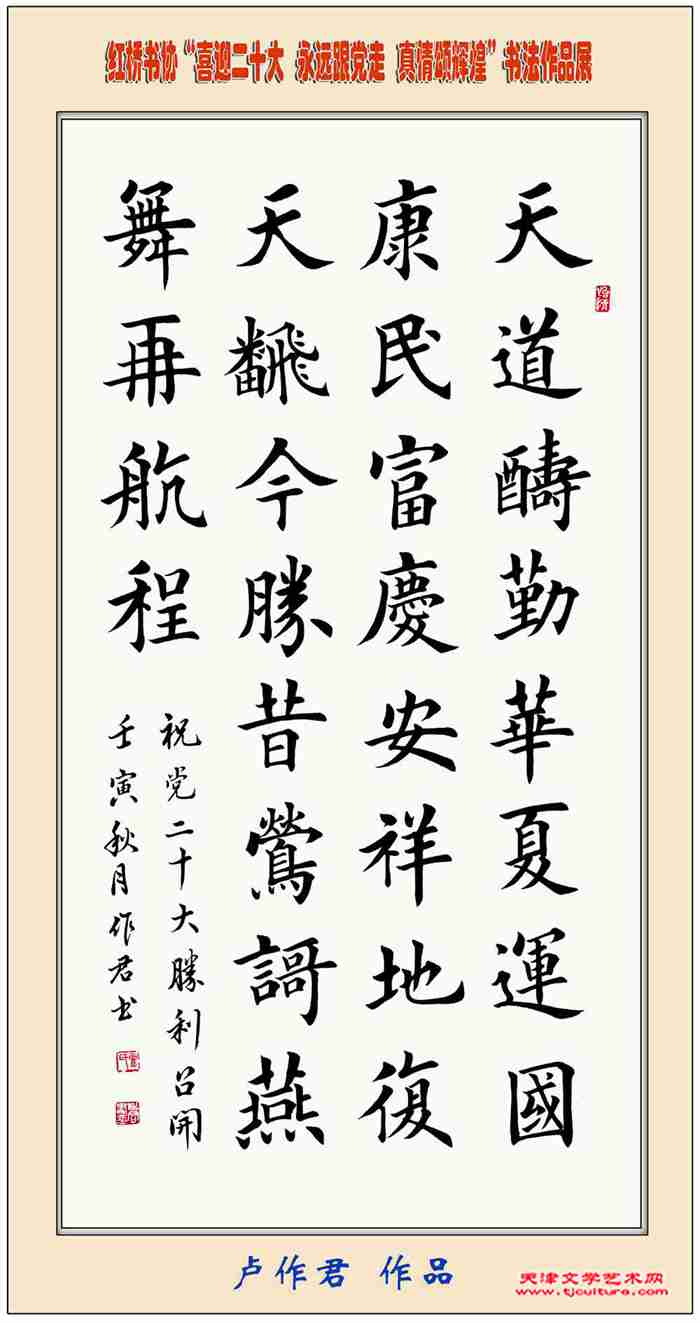 红桥书协“喜迎二十大 永远跟党走 真情颂辉煌”书法作品展
天道酬勤華夏運國
康民富慶安祥地復
天飜今勝昔鶯謌燕
舞再航程
祝党二十大勝利召開
壬寅秋月作君书
卢作君 作品
天津文学艺术网
www.tjculture.com